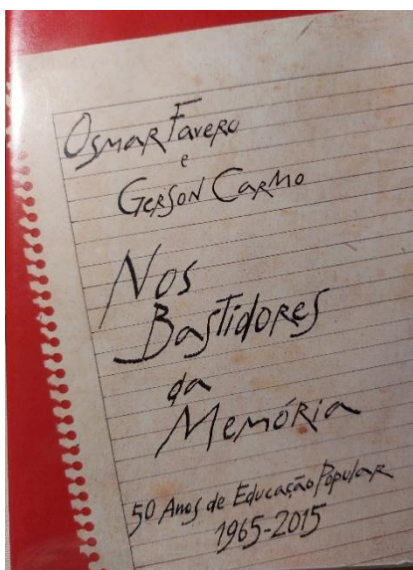 Osmar Favero
e
Gerson Carmo
Nos
Bastidores
da
Memória
50 Anos de Educação Popular
1965-2015